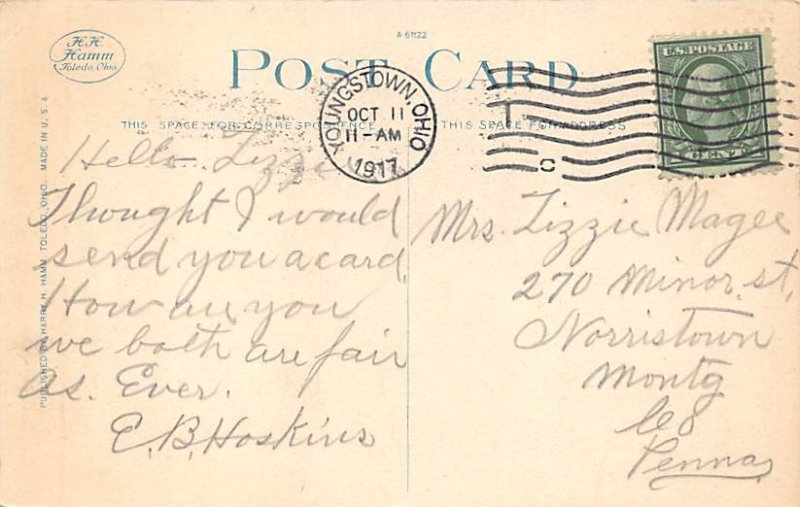 H.H.
Hamm
Toledo, Ohio
A-61122
POST CARD
THIS SPACE FOR CORRESPONDENCE
THIS SPACE FOR ADDRESS
YOUNGSTOWN, OHIO
OCT 11
11-AM
1917
C
U.S. POSTAGE
CENT
PUBLISHED BY HARRY H. HAMM TOLEDO, OHIO. MADE IN U.S.A.
Hello Lizzie
Thought I would
send you a card.
How are you
we both are fair
as. Ever.
E.B. Hoskins
Mrs. Lizzie Magee
270 Minor. st.
Norristown
Montg
Co
Penna